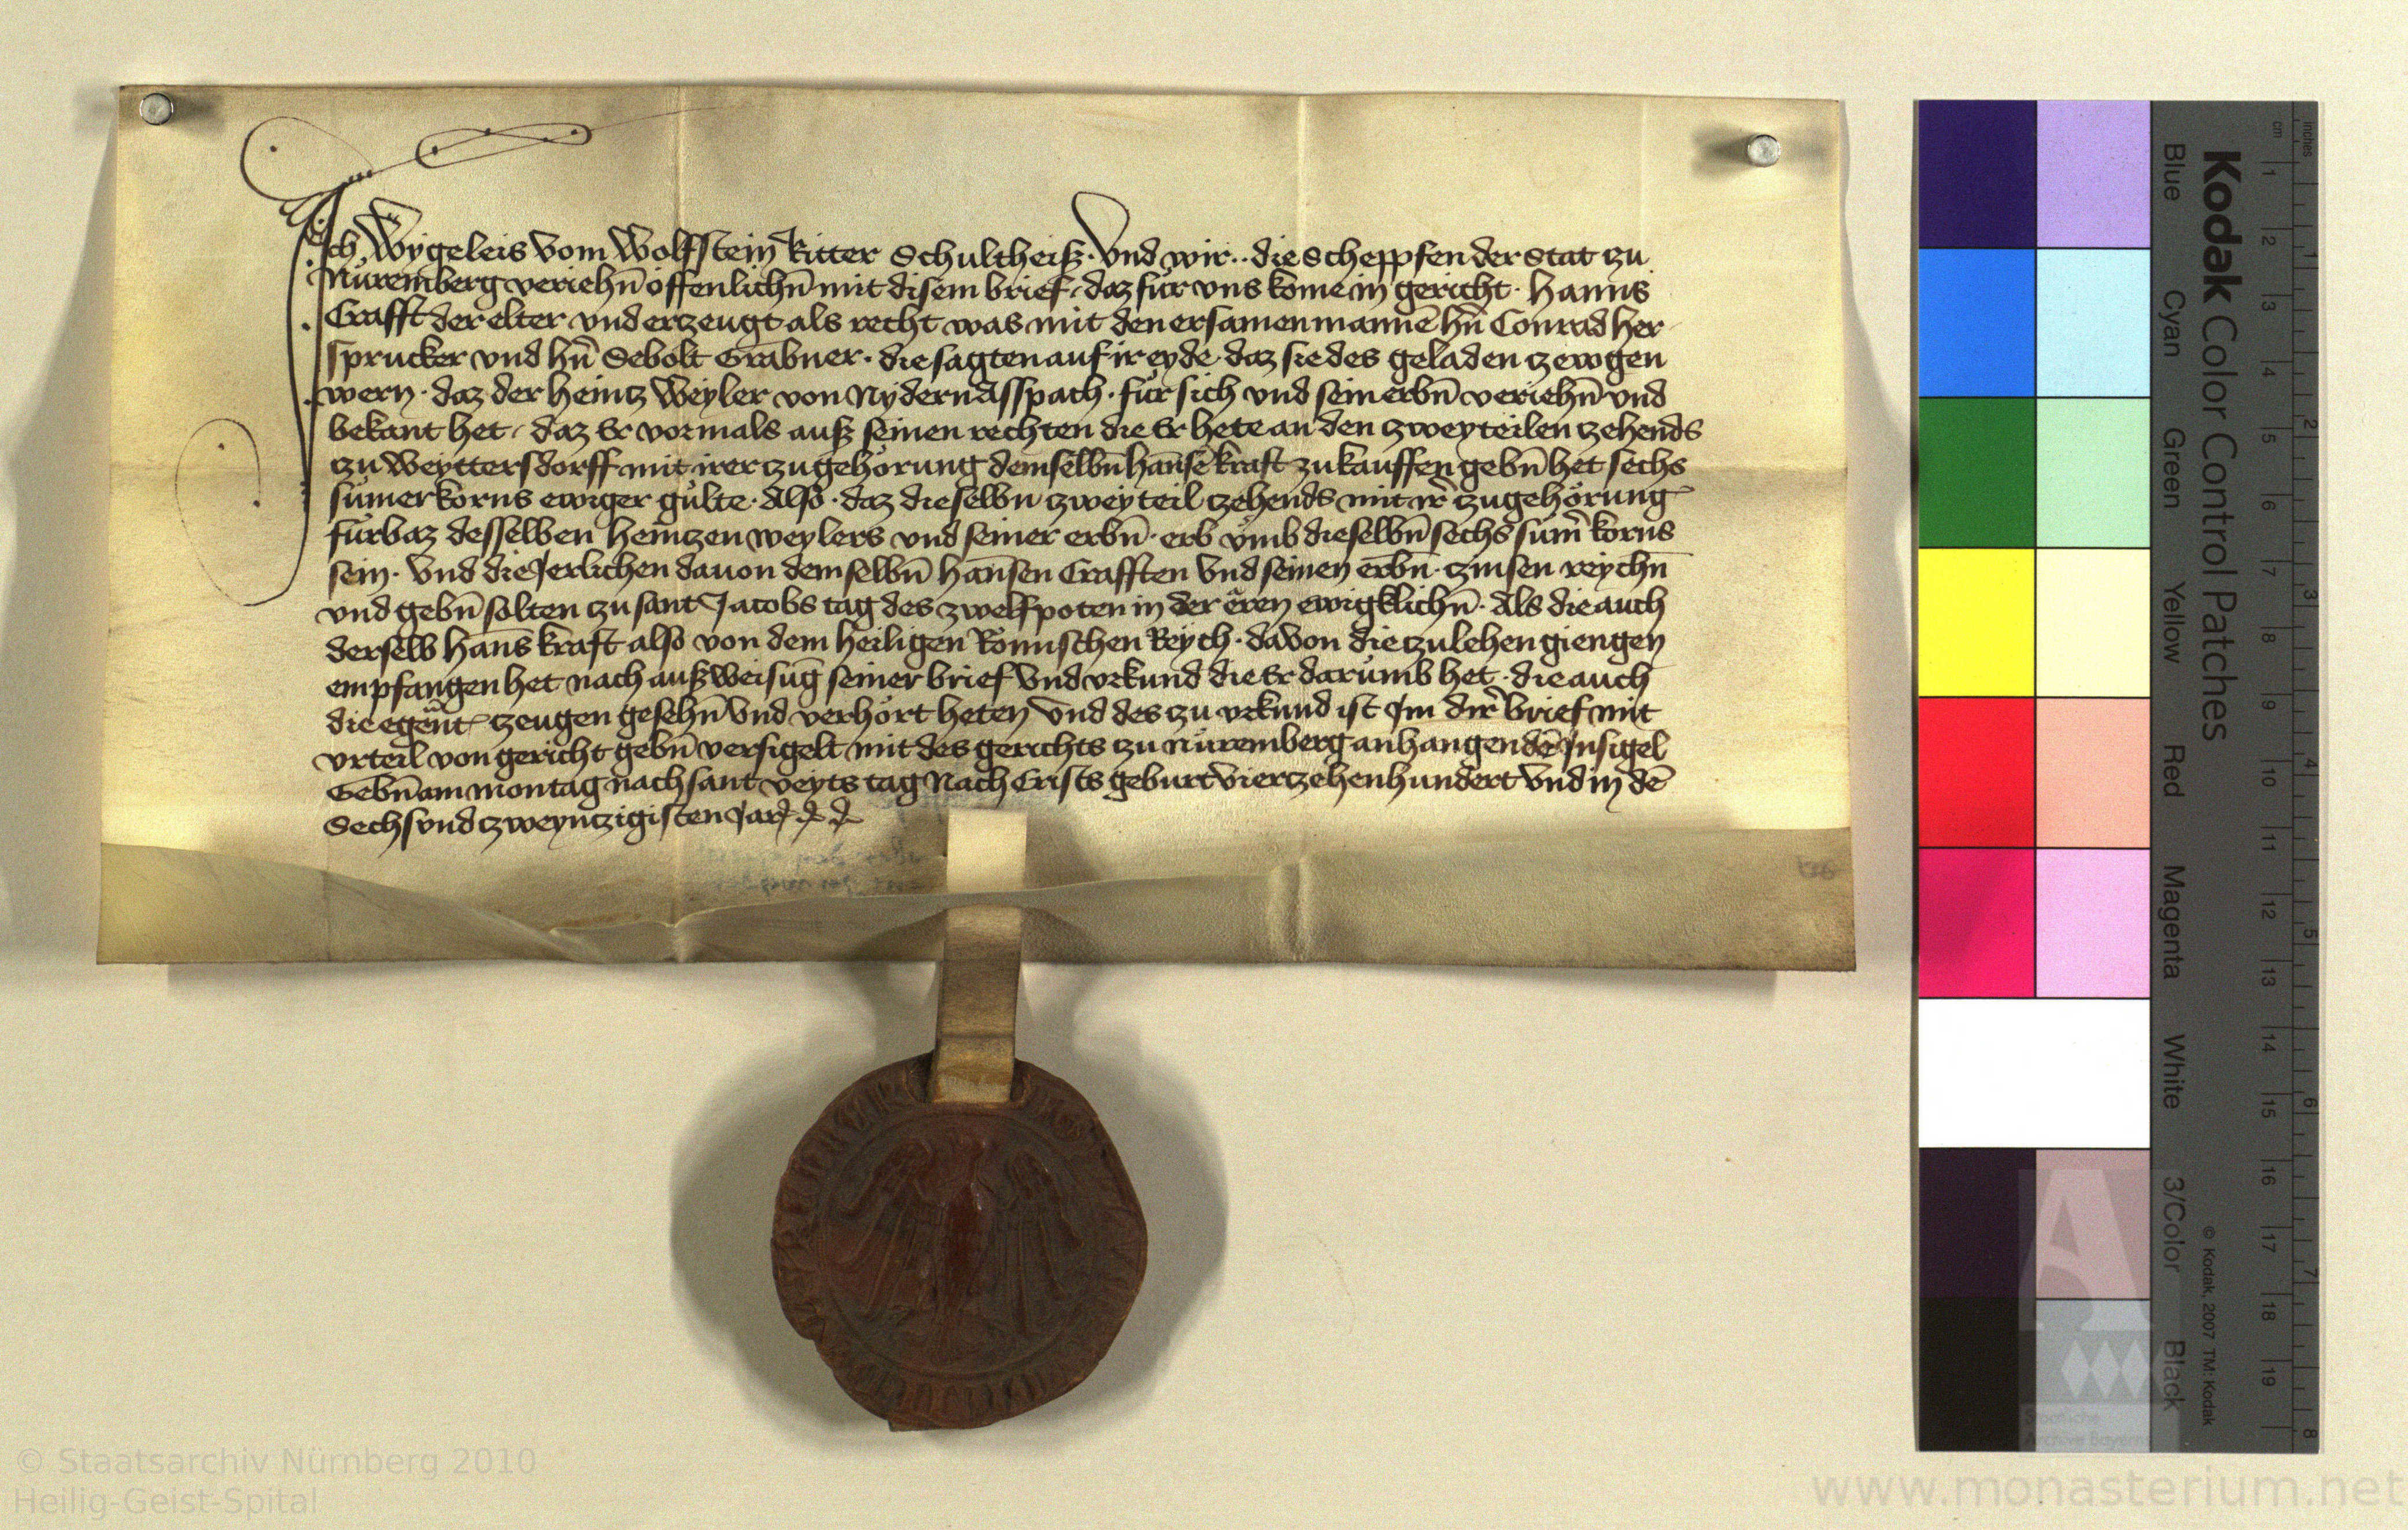 Ich Wygeleis vom Wolffstein Ritter Schultheiß · Vnd wir ·· die Scheppfen der Stat zu
Nůremberg veriehn̄ offenlichn̄ mit disem brief · daz fůr vns kome in gericht · Hanns
Crafft der elter vnd erzeugt als recht was mit den ersamen mannē hn̄ Conrad Her-
sprucker vnd hn̄ Sebolt Grabner · die sagten auf ir eyde · daz sie des geladen zewgen
wern · daz der Heintz Weyler von Nydernasspach · fůr sich vnd sein erbn̄ veriehn̄ vnd
bekant het · daz Er vormals auß seinen rechten die Er hete an den zweyteilen zehends
zu Weyttersdorff mit irer zugehörung demselbn̄ Hannsē kraft zukauffen gebn̄ het sechs
sůmer korns ewiger gůlte · Also · daz dieselbn̄ zwey teil zehends mit ir̄ zugehörung
fůrbaz desselben Heintzen Weylers vnd seiner erbn̄ · erb vmb dieselbn̄ sechs sum̄ korns
sein · Vnd die Jerlichen dauon demselbn̄ Hannsen Crafften Vnd seinen erbn̄ · zinsen reychn̄
vnd gebn̄ solten zu sant Jacobs tag des zwelfpoten in der eren ewigklichn̄ · Als die auch
derselb Hanns kraft also von dem heiligen Römischen Reych · davon die zulehen giengen
empfangen het nach außweisuḡ seiner brief Vnd vrkund die Er darumb het · die auch
die egen̄t zeugen gesehn̄ Vnd verhört heten Vnd des zu vrkund ist Im dir̄ brief mit
vrteil von gericht gebn̄ versigelt mit des gerichts zu Nůremberg anhangendē Insigel
Gebn̄ am montag nach sant veyts tag Nach Crists geburt Vierzehenhundert Vnd in dē
Sechsvndzweyntzigisten Jar
Kodak Color Control Patches
Blue Cyan Green Yellow Red Magenta White 3/Color Black
© Kodak, 2007 TM: Kodak
cm 1 2 3 4 5 6 7 8 9 10 11 12 13 14 15 16 17 18 19
inches 1 2 3 4 5 6 7 8
Staatliche
Archive Bayerns
© Staatsarchiv Nürnberg 2010
Heilig-Geist-Spital
www.monasterium.net